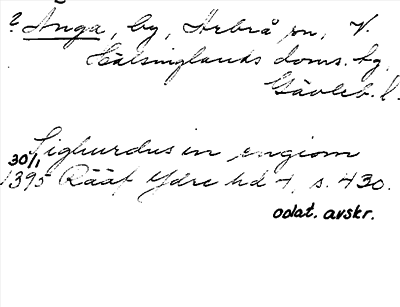 ? Änga, by, Arbrå sn, V.
Hälsinglands doms. by,
Gävleb. l.
Sighurdus in engiom
30/1
1395 Rääf Ydre hd 4, s. 430.
odat. avskr.